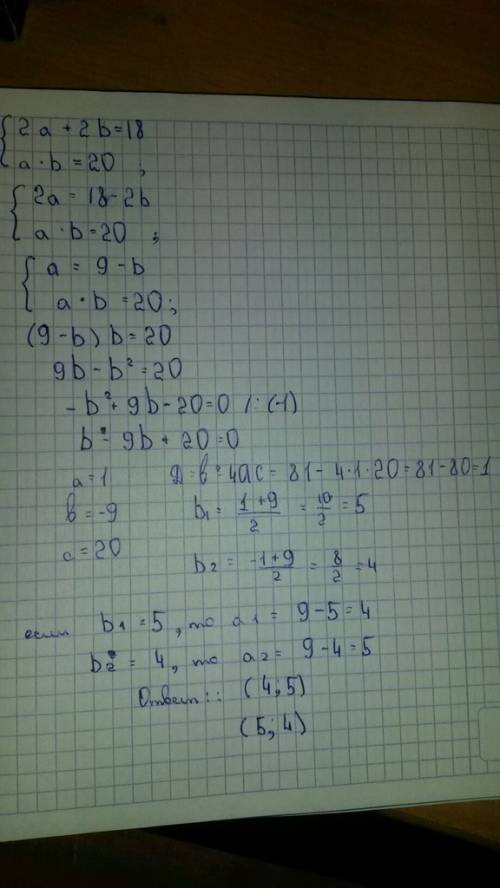 {2a + 2b = 18
a · b = 20 ;
{2a = 18 - 2b
a · b = 20 ;
{a = 9 - b
a · b = 20;
(9 - b) b = 20
9b - b² = 20
-b² + 9b - 20 = 0 /: (-1)
b² - 9b + 20 = 0
a = 1 D = b² - 4ac = 81 - 4·1·20 = 81 - 80 = 1
b = -9 b₁ = (1+9)/2 = 10/2 = 5
c = 20 b₂ = (-1+9)/2 = 8/2 = 4
если b₁ = 5, то a₁ = 9 - 5 = 4
b₂ = 4, то a₂ = 9 - 4 = 5
Ответ:: (4;5)
(5;4)